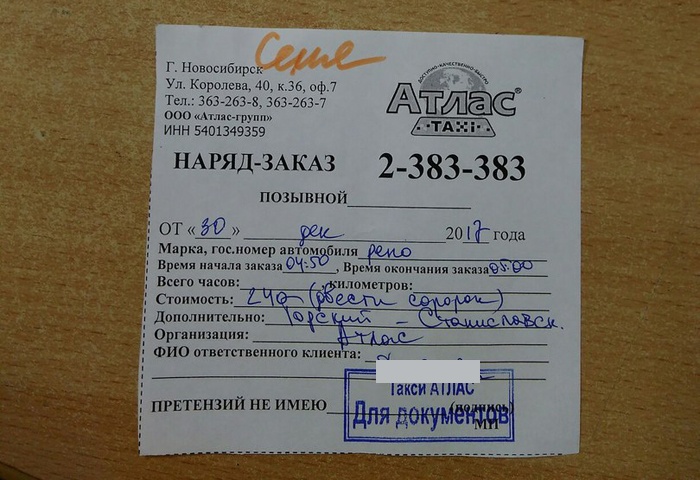 Г. Новосибирск
Ул. Королева, 40, к.36, оф.7
Тел.: 363-263-8, 363-263-7
ООО «Атлас-групп»
ИНН 5401349359
ДОСТУПНО-КАЧЕСТВЕННО-БЫСТРО
Атлас®
·TAXI·
НАРЯД-ЗАКАЗ 2-383-383
ПОЗЫВНОЙ
ОТ «30» дек 2017 года
Марка, гос.номер автомобиля рено
Время начала заказа 04:50, Время окончания заказа 05:00
Всего часов: километров:
Стоимость: 240 (двести сорок)
Дополнительно: Горский - Станиславск.
Организация: Атлас
ФИО ответственного клиента:
Такси АТЛАС
ПРЕТЕНЗИЙ НЕ ИМЕЮ (подпись)
Для документов
МП